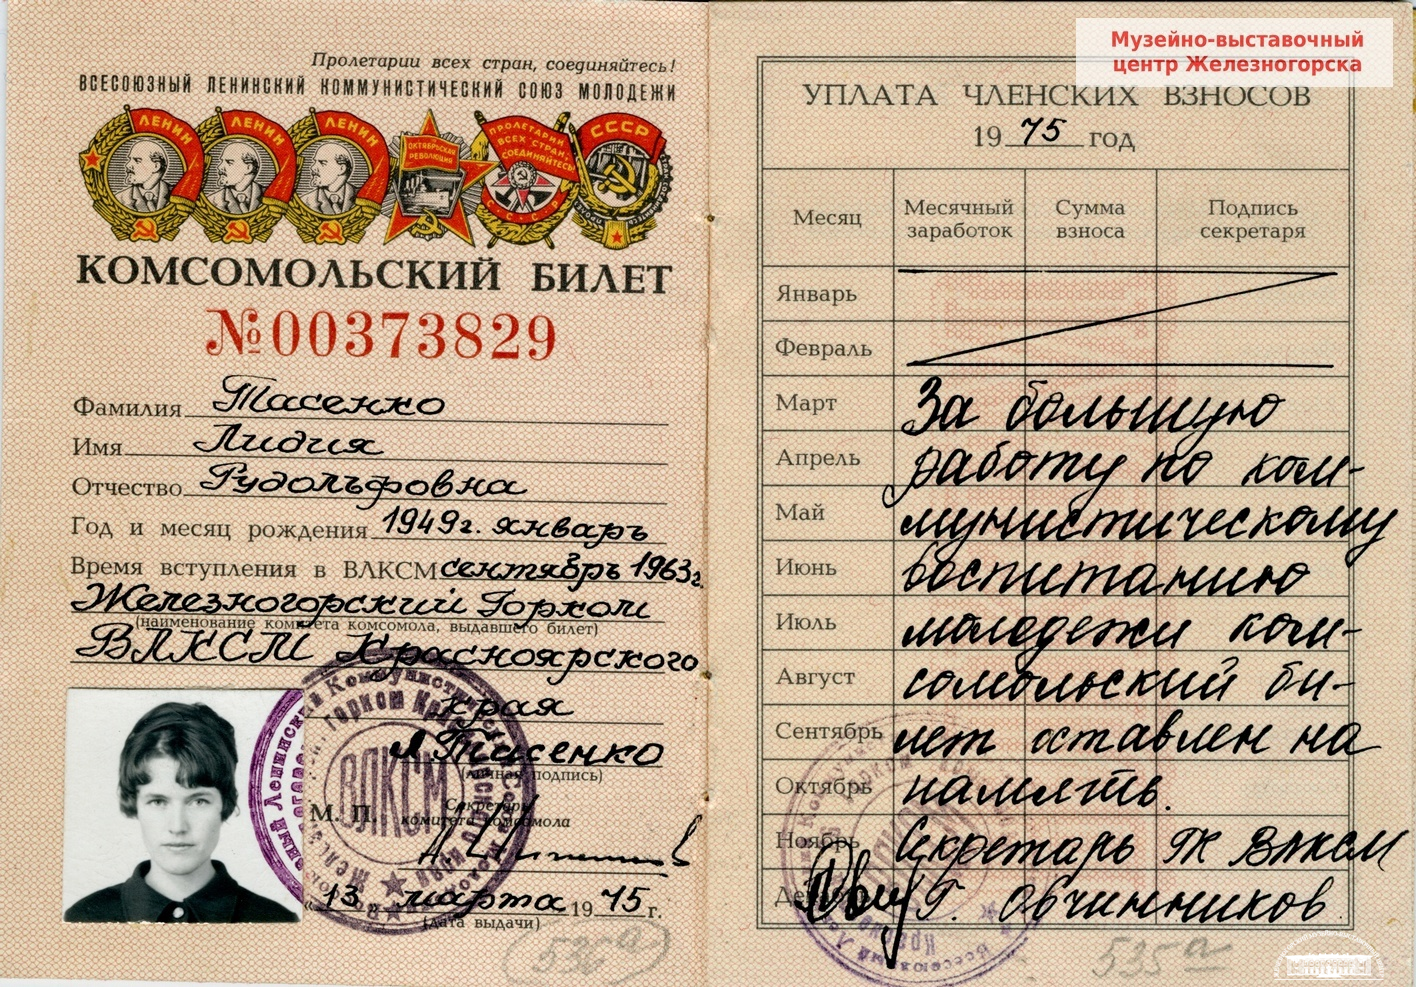 Пролетарии всех стран, соединяйтесь!
ВСЕСОЮЗНЫЙ ЛЕНИНСКИЙ КОММУНИСТИЧЕСКИЙ СОЮЗ МОЛОДЕЖИ
ЛЕНИН ЛЕНИН ЛЕНИН
ОКТЯБРЬСКАЯ РЕВОЛЮЦИЯ
ПРОЛЕТАРИИ ВСЕХ СТРАН, СОЕДИНЯЙТЕСЬ!
СССР
КОМСОМОЛЬСКИЙ БИЛЕТ
№00373829
Фамилия Тасенко
Имя Лидия
Отчество Рудольфовна
Год и месяц рождения 1949г. январь
Время вступления в ВЛКСМ сентябрь 1963г.
Железногорский Горком
(наименование комитета комсомола, выдавшего билет)
ВЛКСМ Красноярского
края
Л Тасенко
(личная подпись)
М. П.
ВЛКСМ
Секретарь
комитета комсомола
"13" марта 1975 г.
(дата выдачи)
535а
Музейно-выставочный
центр Железногорска
УПЛАТА ЧЛЕНСКИХ ВЗНОСОВ
19 75 год
Месяц Месячный заработок Сумма взноса Подпись секретаря
Январь
Февраль
Март За большую
Апрель работу по ком-
Май мунистическому
Июнь воспитанию
Июль молодежи ком-
Август сомольский би-
Сентябрь лет оставлен на
Октябрь память.
Ноябрь Секретарь ГК ВЛКСМ
Г. Овчинников
535а